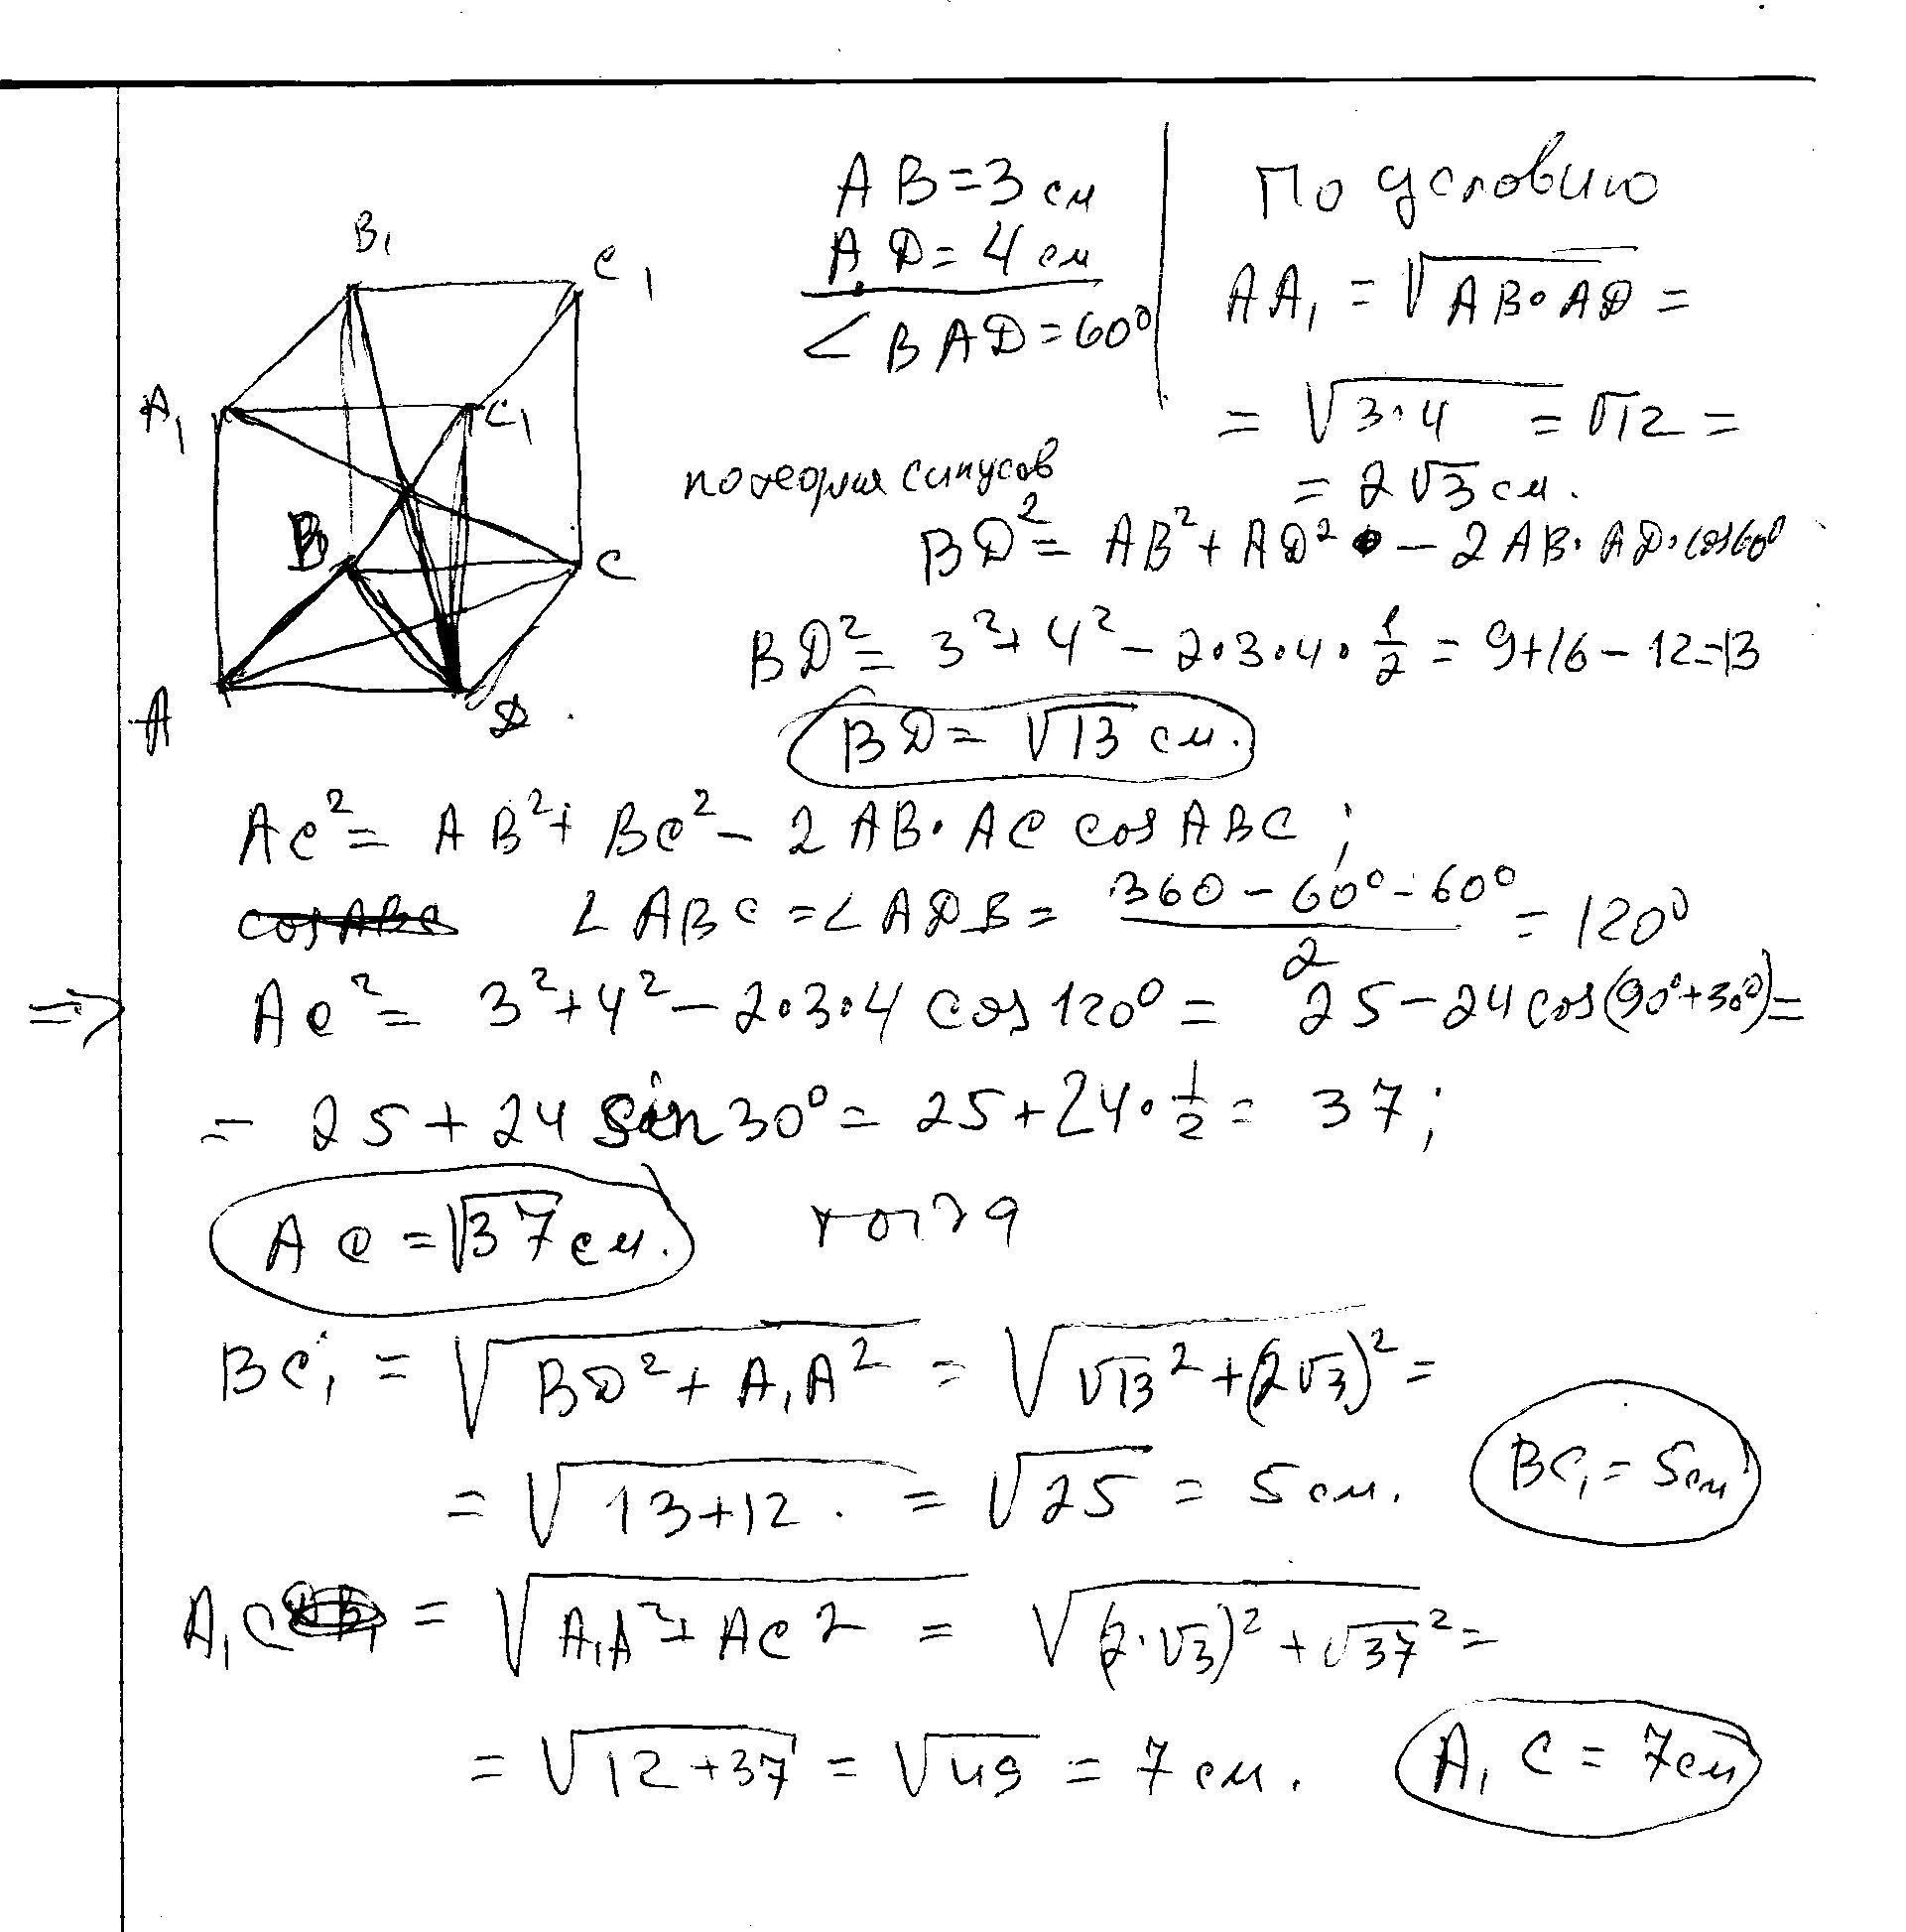 B₁
C₁
A₁
C₁
B
C
A
D
AB=3 см
AD=4 см
∠BAD=60⁰
По условию
AA₁ = √AB·AD =
= √3·4 = √12 =
= 2√3 см.
по теория синусов
BD² = AB² + AD² - 2AB·AD·cos60⁰
BD² = 3² + 4² - 2·3·4·1/2 = 9+16-12=13
BD = √13 см.
AC² = AB² + BC² - 2AB·AC cosABC;
cosABC ∠ABC = ∠ADB = (360 - 60⁰ - 60⁰)/2 = 120⁰
=> AC² = 3² + 4² - 2·3·4 cos120⁰ = 25 - 24cos(90⁰+30⁰) =
= 25 + 24 sin30⁰ = 25 + 24·1/2 = 37;
AC = √37 см. тогда
BC₁ = √BD² + A₁A² = √√13² + (2√3)² =
= √13+12 = √25 = 5 см. BC₁ = 5см
A₁C = √A₁A² + AC² = √(2·√3)² + √37² =
= √12+37 = √49 = 7 см. A₁C = 7см